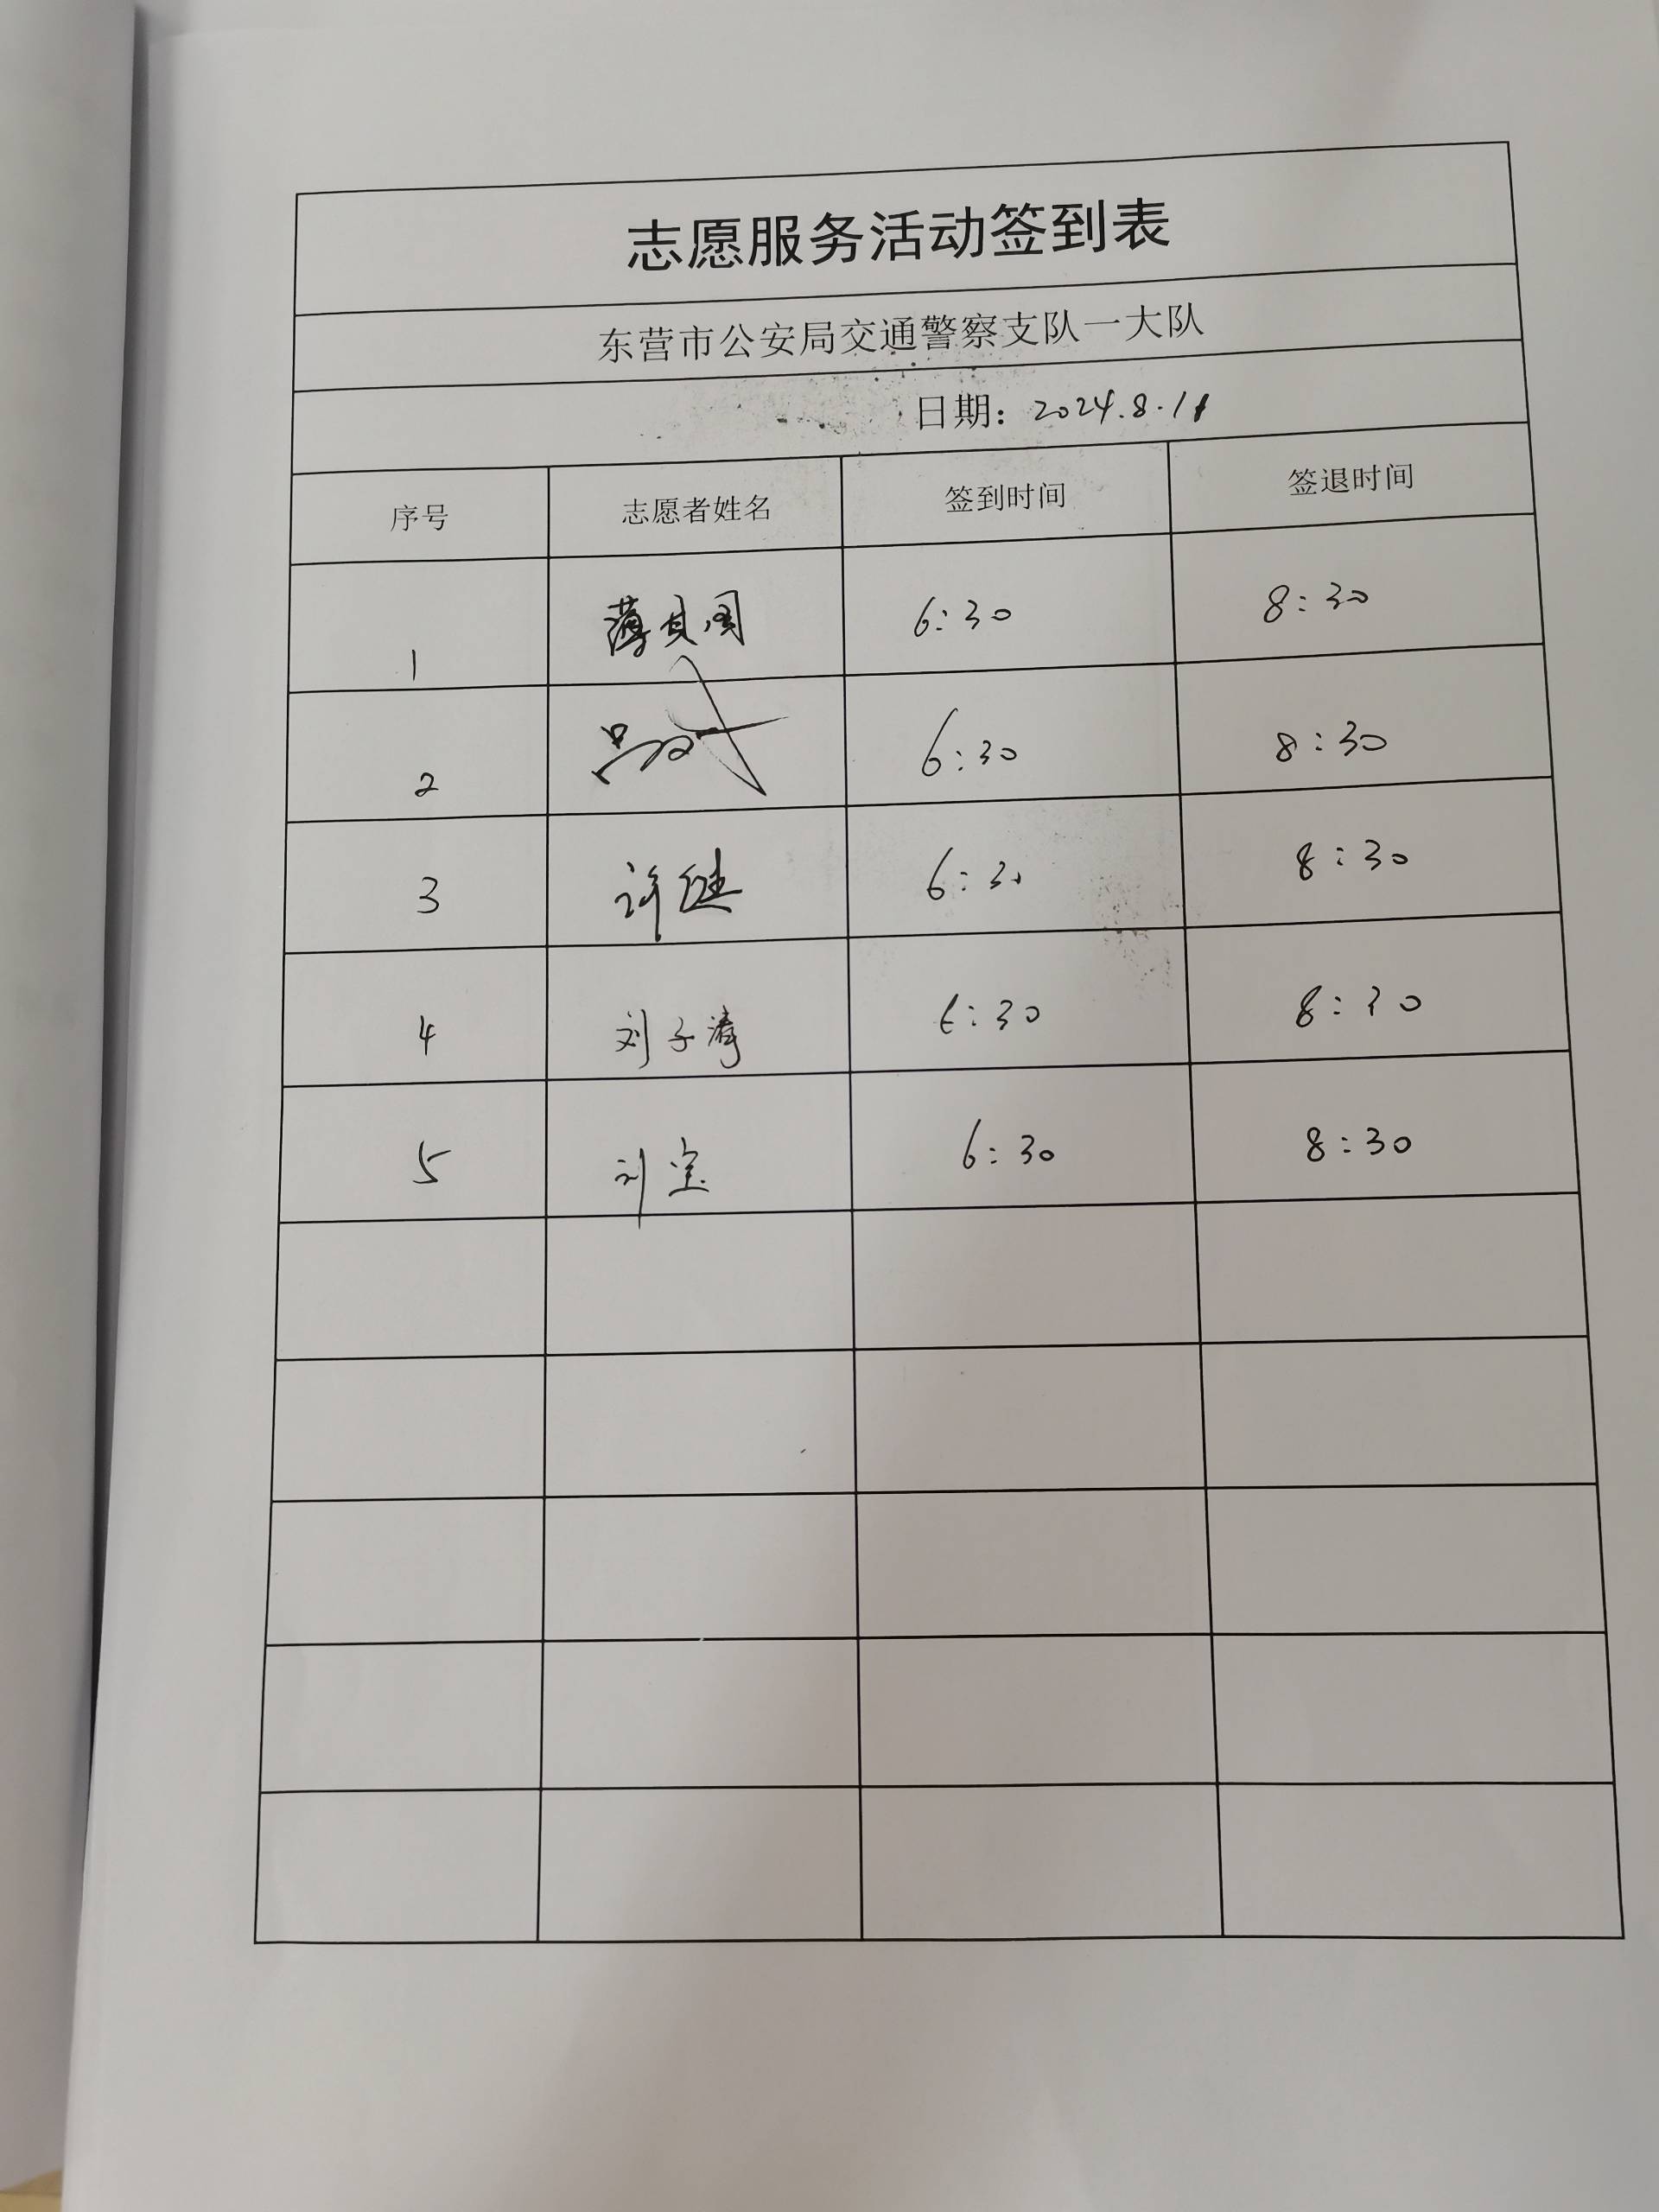 志愿服务活动签到表
东营市公安局交通警察支队一大队
日期：2024.8.11
序号 志愿者姓名 签到时间 签退时间
1 薄其周 6:30 8:30
2 6:30 8:30
3 许健 6:30 8:30
4 刘子涛 6:30 8:30
5 刘宝 6:30 8:30